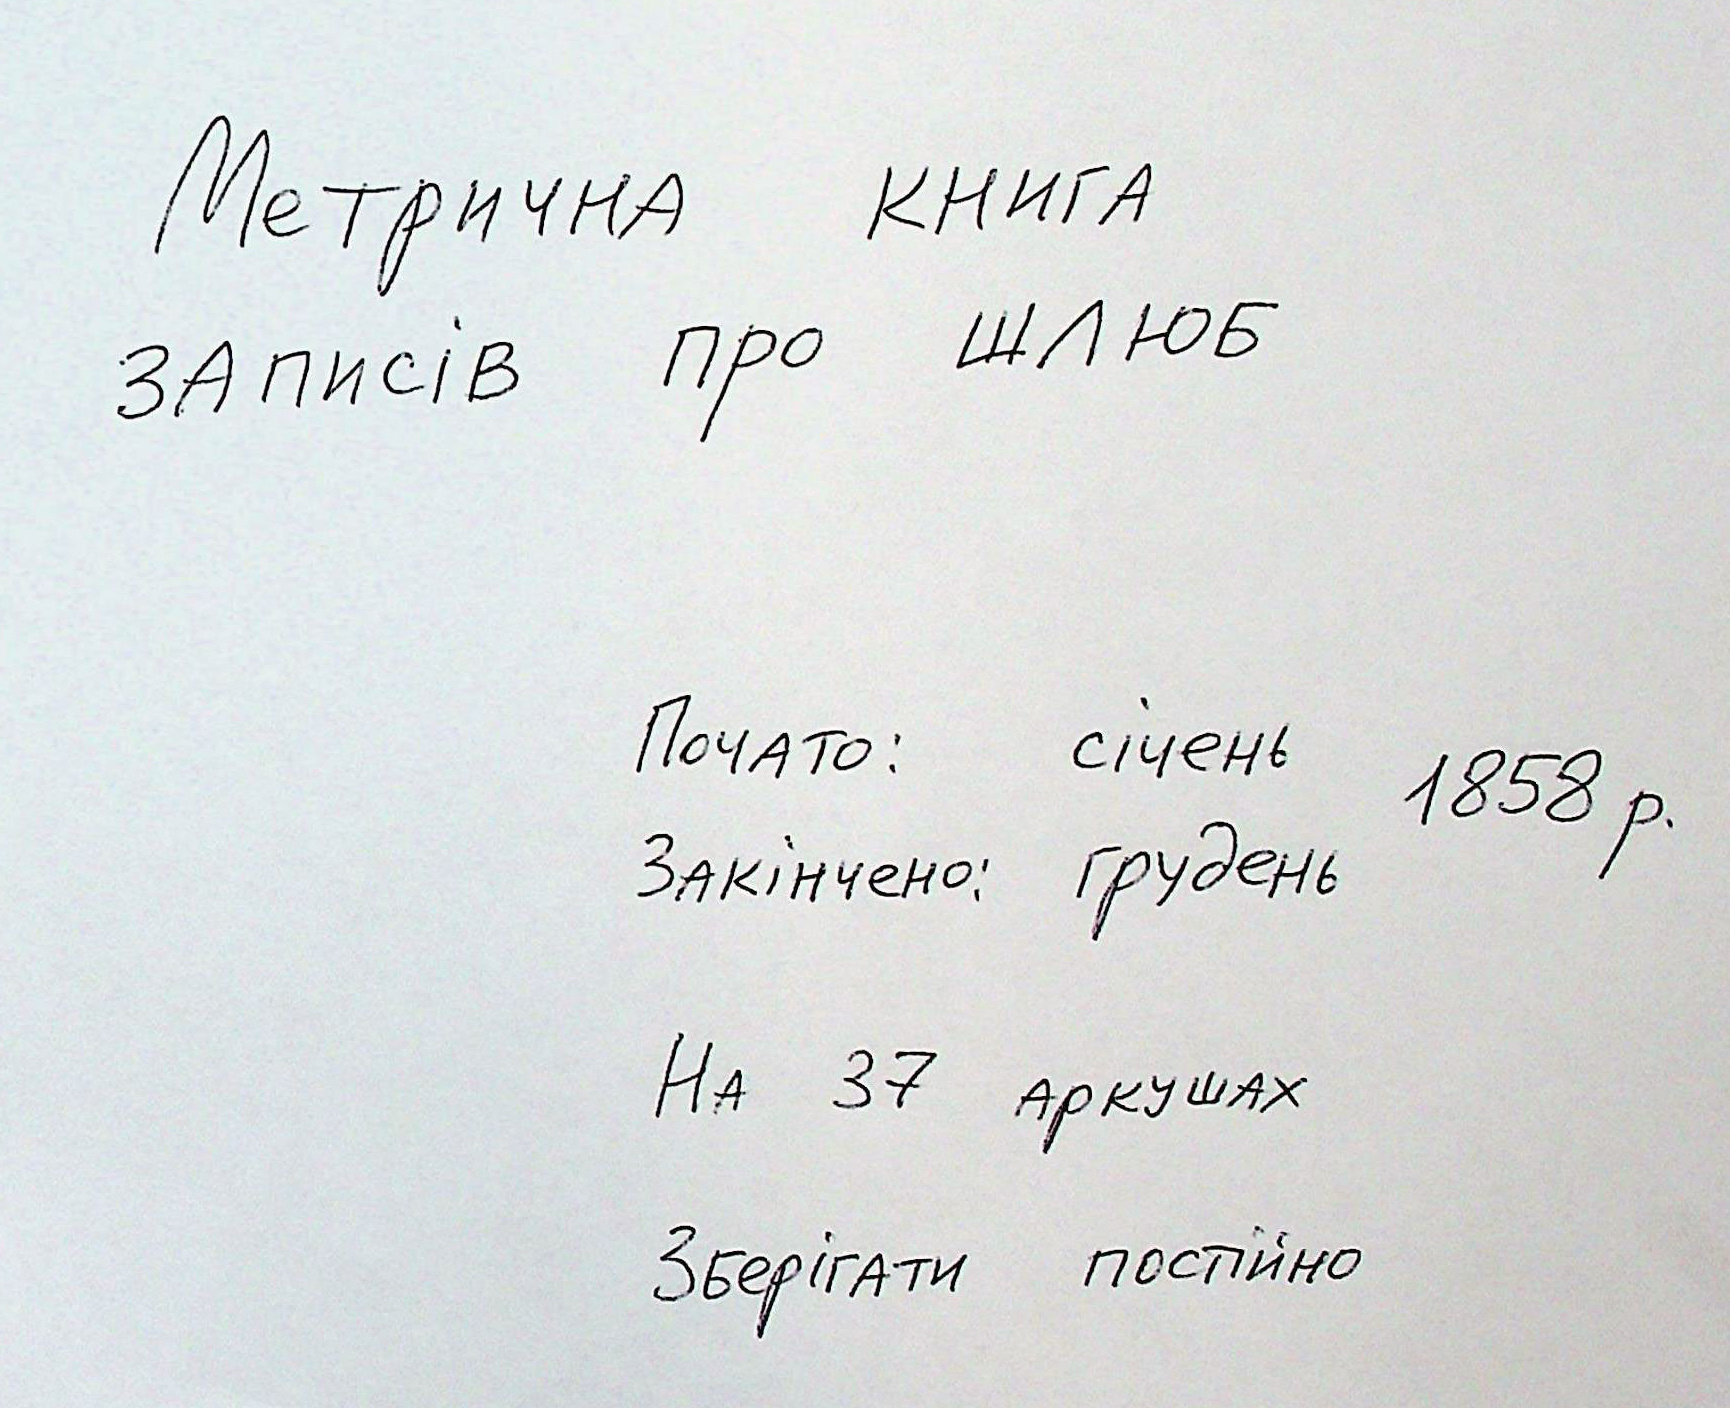 Метрична книга
записів про шлюб
Почато: січень 1858 р.
Закінчено: грудень
На 37 аркушах
Зберігати постійно